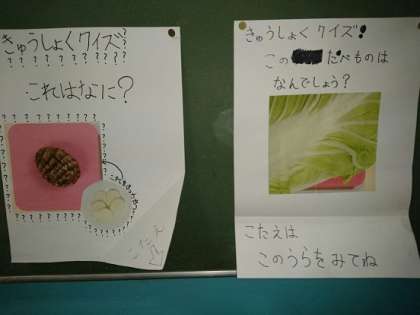 きゅうしょくクイズ?
? ? ? ? ? ? ? ? ?
これはなに?
こたえ
きゅうしょく クイズ!
この たべものは
なんでしょう?
こたえは
このうらをみてね